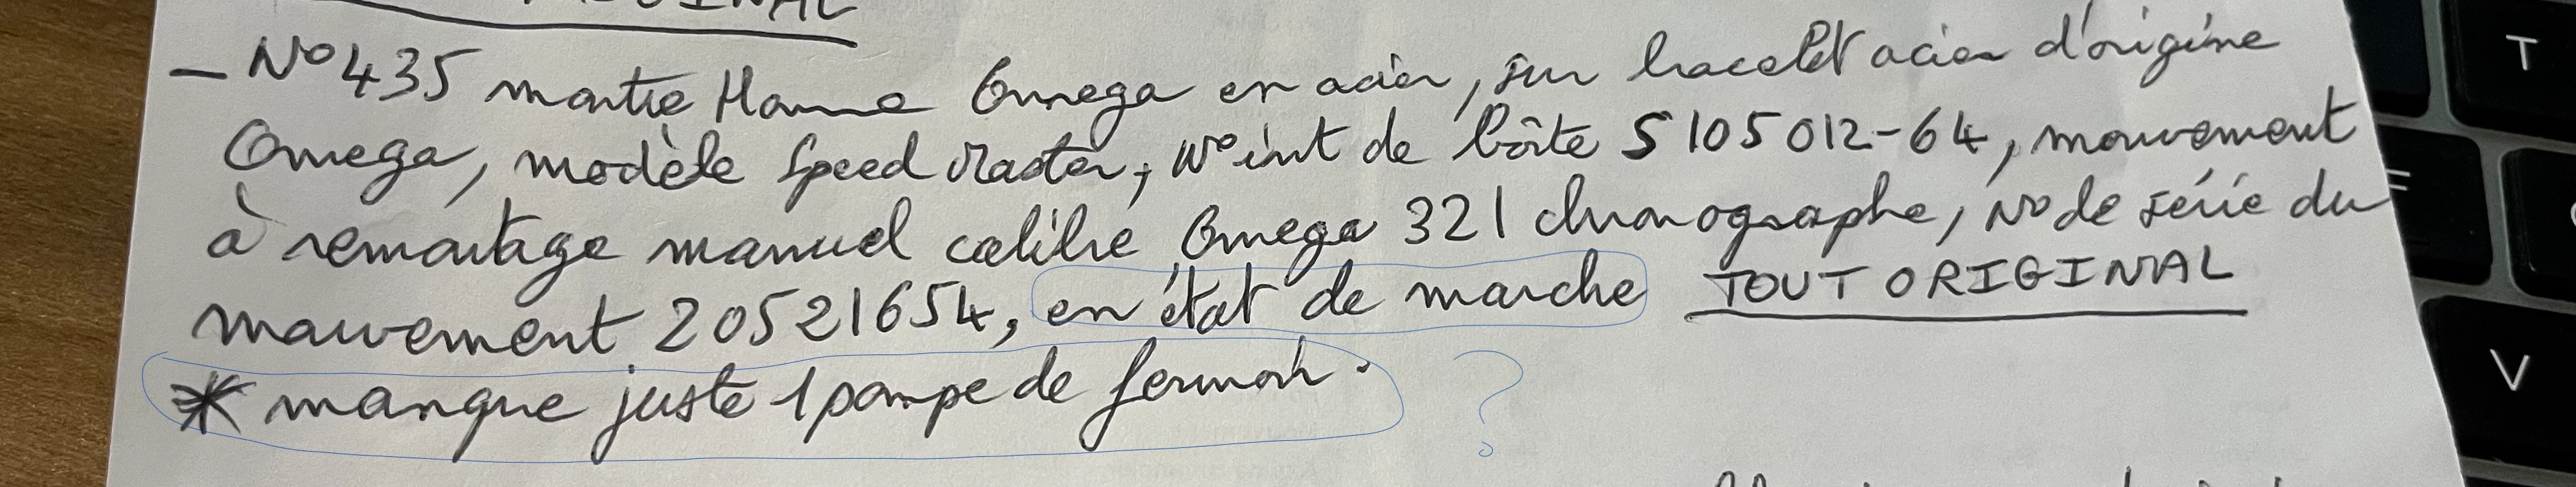 ORIGINAL
- N° 435 montre Homme Omega en acier, sur bracelet acier d'origine
Omega, modèle Speed Master, N° int de boîte S 105 012-64, mouvement
à remontage manuel calibre Omega 321 chronographe, N° de série du
mouvement 20521654, en état de marche TOUT ORIGINAL
* manque juste 1 pompe de fermoir.
?
T
F
V